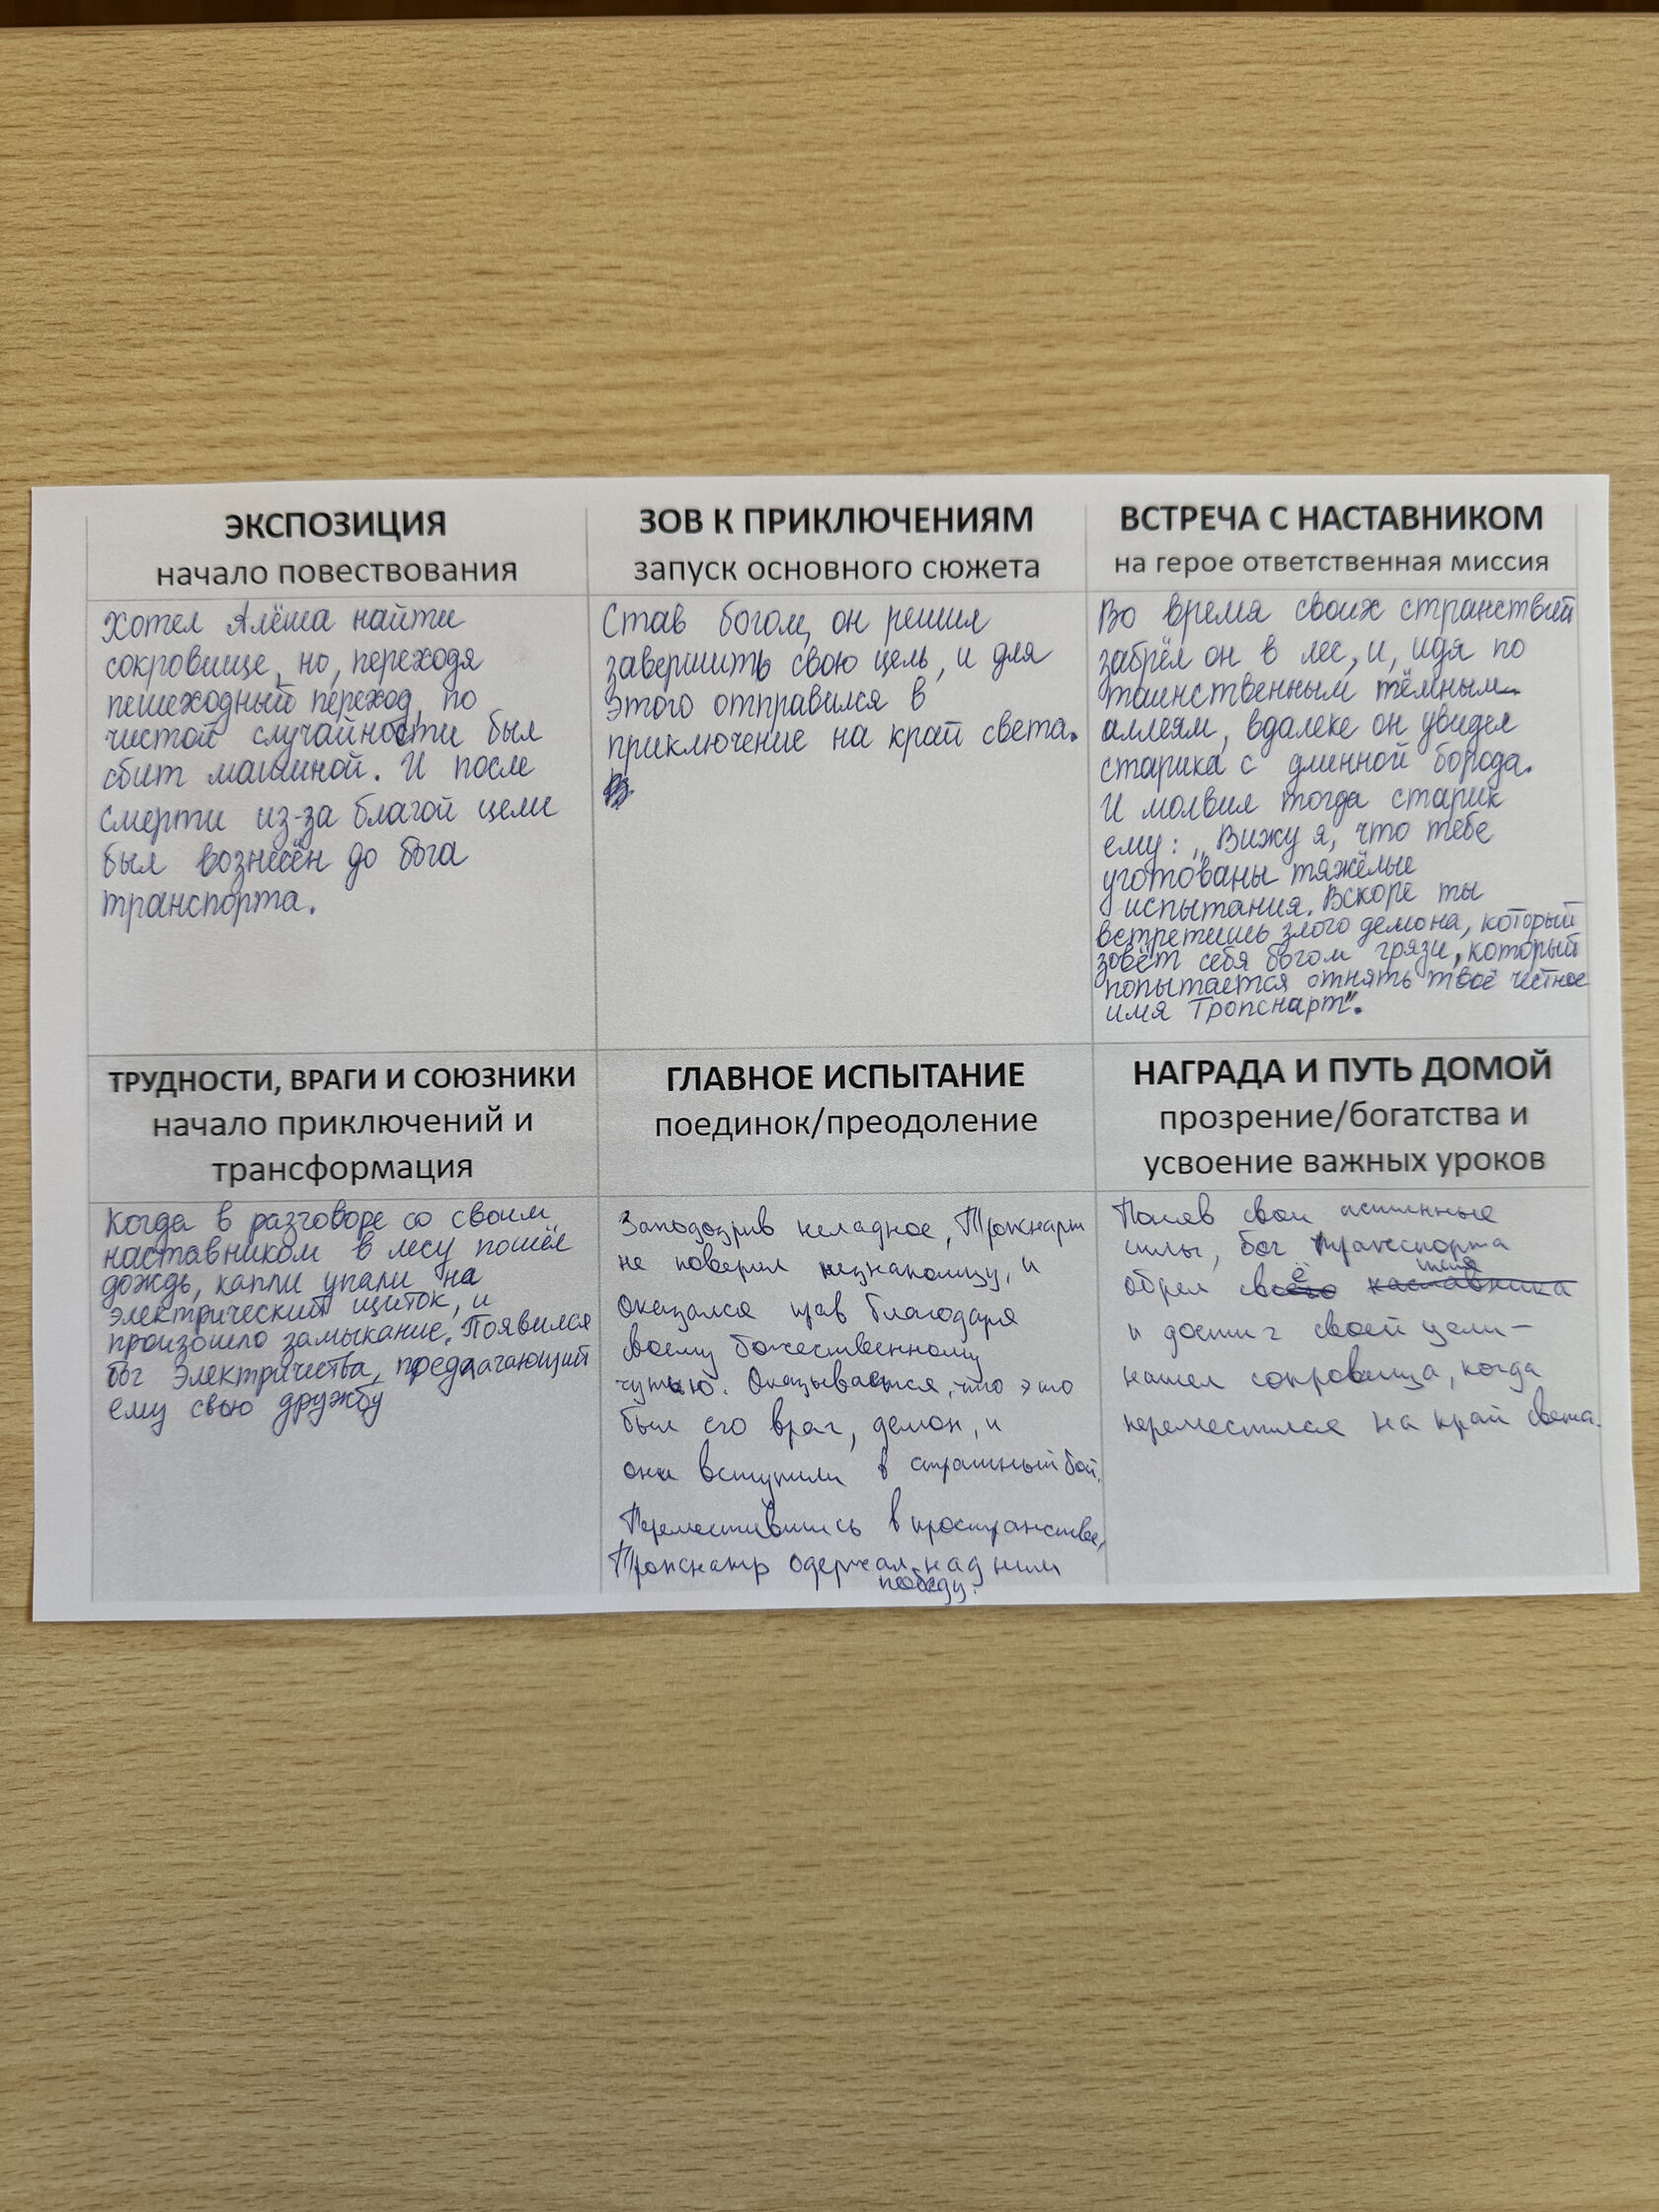 ЭКСПОЗИЦИЯ
начало повествования
Хотел Алёша найти
сокровище, но, переходя
пешеходный переход, по
чистой случайности был
сбит машиной. И после
смерти из-за благой цели
был вознесён до бога
транспорта.
ЗОВ К ПРИКЛЮЧЕНИЯМ
запуск основного сюжета
Став богом, он решил
завершить свою цель, и для
этого отправился в
приключение на край света.
ВСТРЕЧА С НАСТАВНИКОМ
на герое ответственная миссия
Во время своих странствий
забрёл он в лес, и, идя по
таинственным тёмным
аллеям, вдалеке он увидел
старика с длинной борода.
И молвил тогда старик
ему: „Вижу я, что тебе
уготованы тяжёлые
испытания. Вскоре ты
встретишь злого демона, который
зовёт себя богом грязи, который
попытается отнять твоё честное
имя Тропснарт".
ТРУДНОСТИ, ВРАГИ И СОЮЗНИКИ
начало приключений и
трансформация
Когда в разговоре со своим
наставником в лесу пошёл
дождь, капли упали на
электрический щиток, и
произошло замыкание. Появился
бог Электричества, предлагающий
ему свою дружбу
ГЛАВНОЕ ИСПЫТАНИЕ
поединок/преодоление
Заподозрив неладное, Тропснарт
не поверил незнакомцу, и
оказался прав благодаря
своему божественному
чутью. Оказывается, что это
был его враг, демон, и
они вступили в страшный бой.
Переместившись в пространстве,
одержал над ним
победу.
НАГРАДА И ПУТЬ ДОМОЙ
прозрение/богатства и
усвоение важных уроков
Поняв свои истинные
силы, бог транспорта
обрел своё имя наставника
и достиг своей цели –
нашел сокровища, когда
переместился на край света.